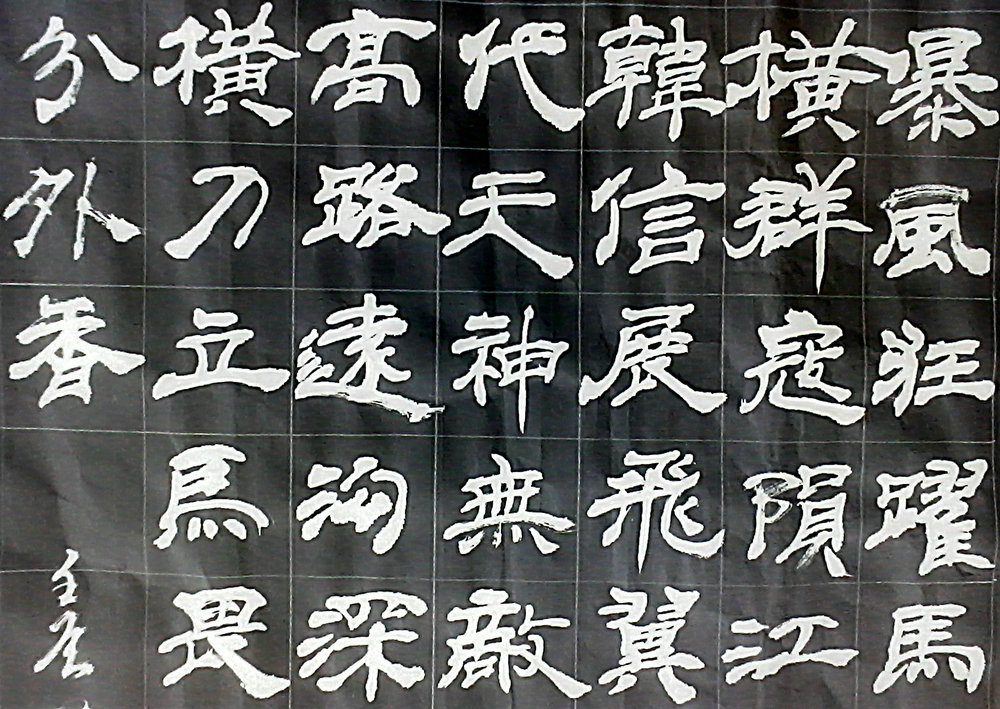 暴風狂躍馬
橫群寇隕江
韓信展飛翼
代天神無敵
高路遠溝深
橫刀立馬畏
分外香